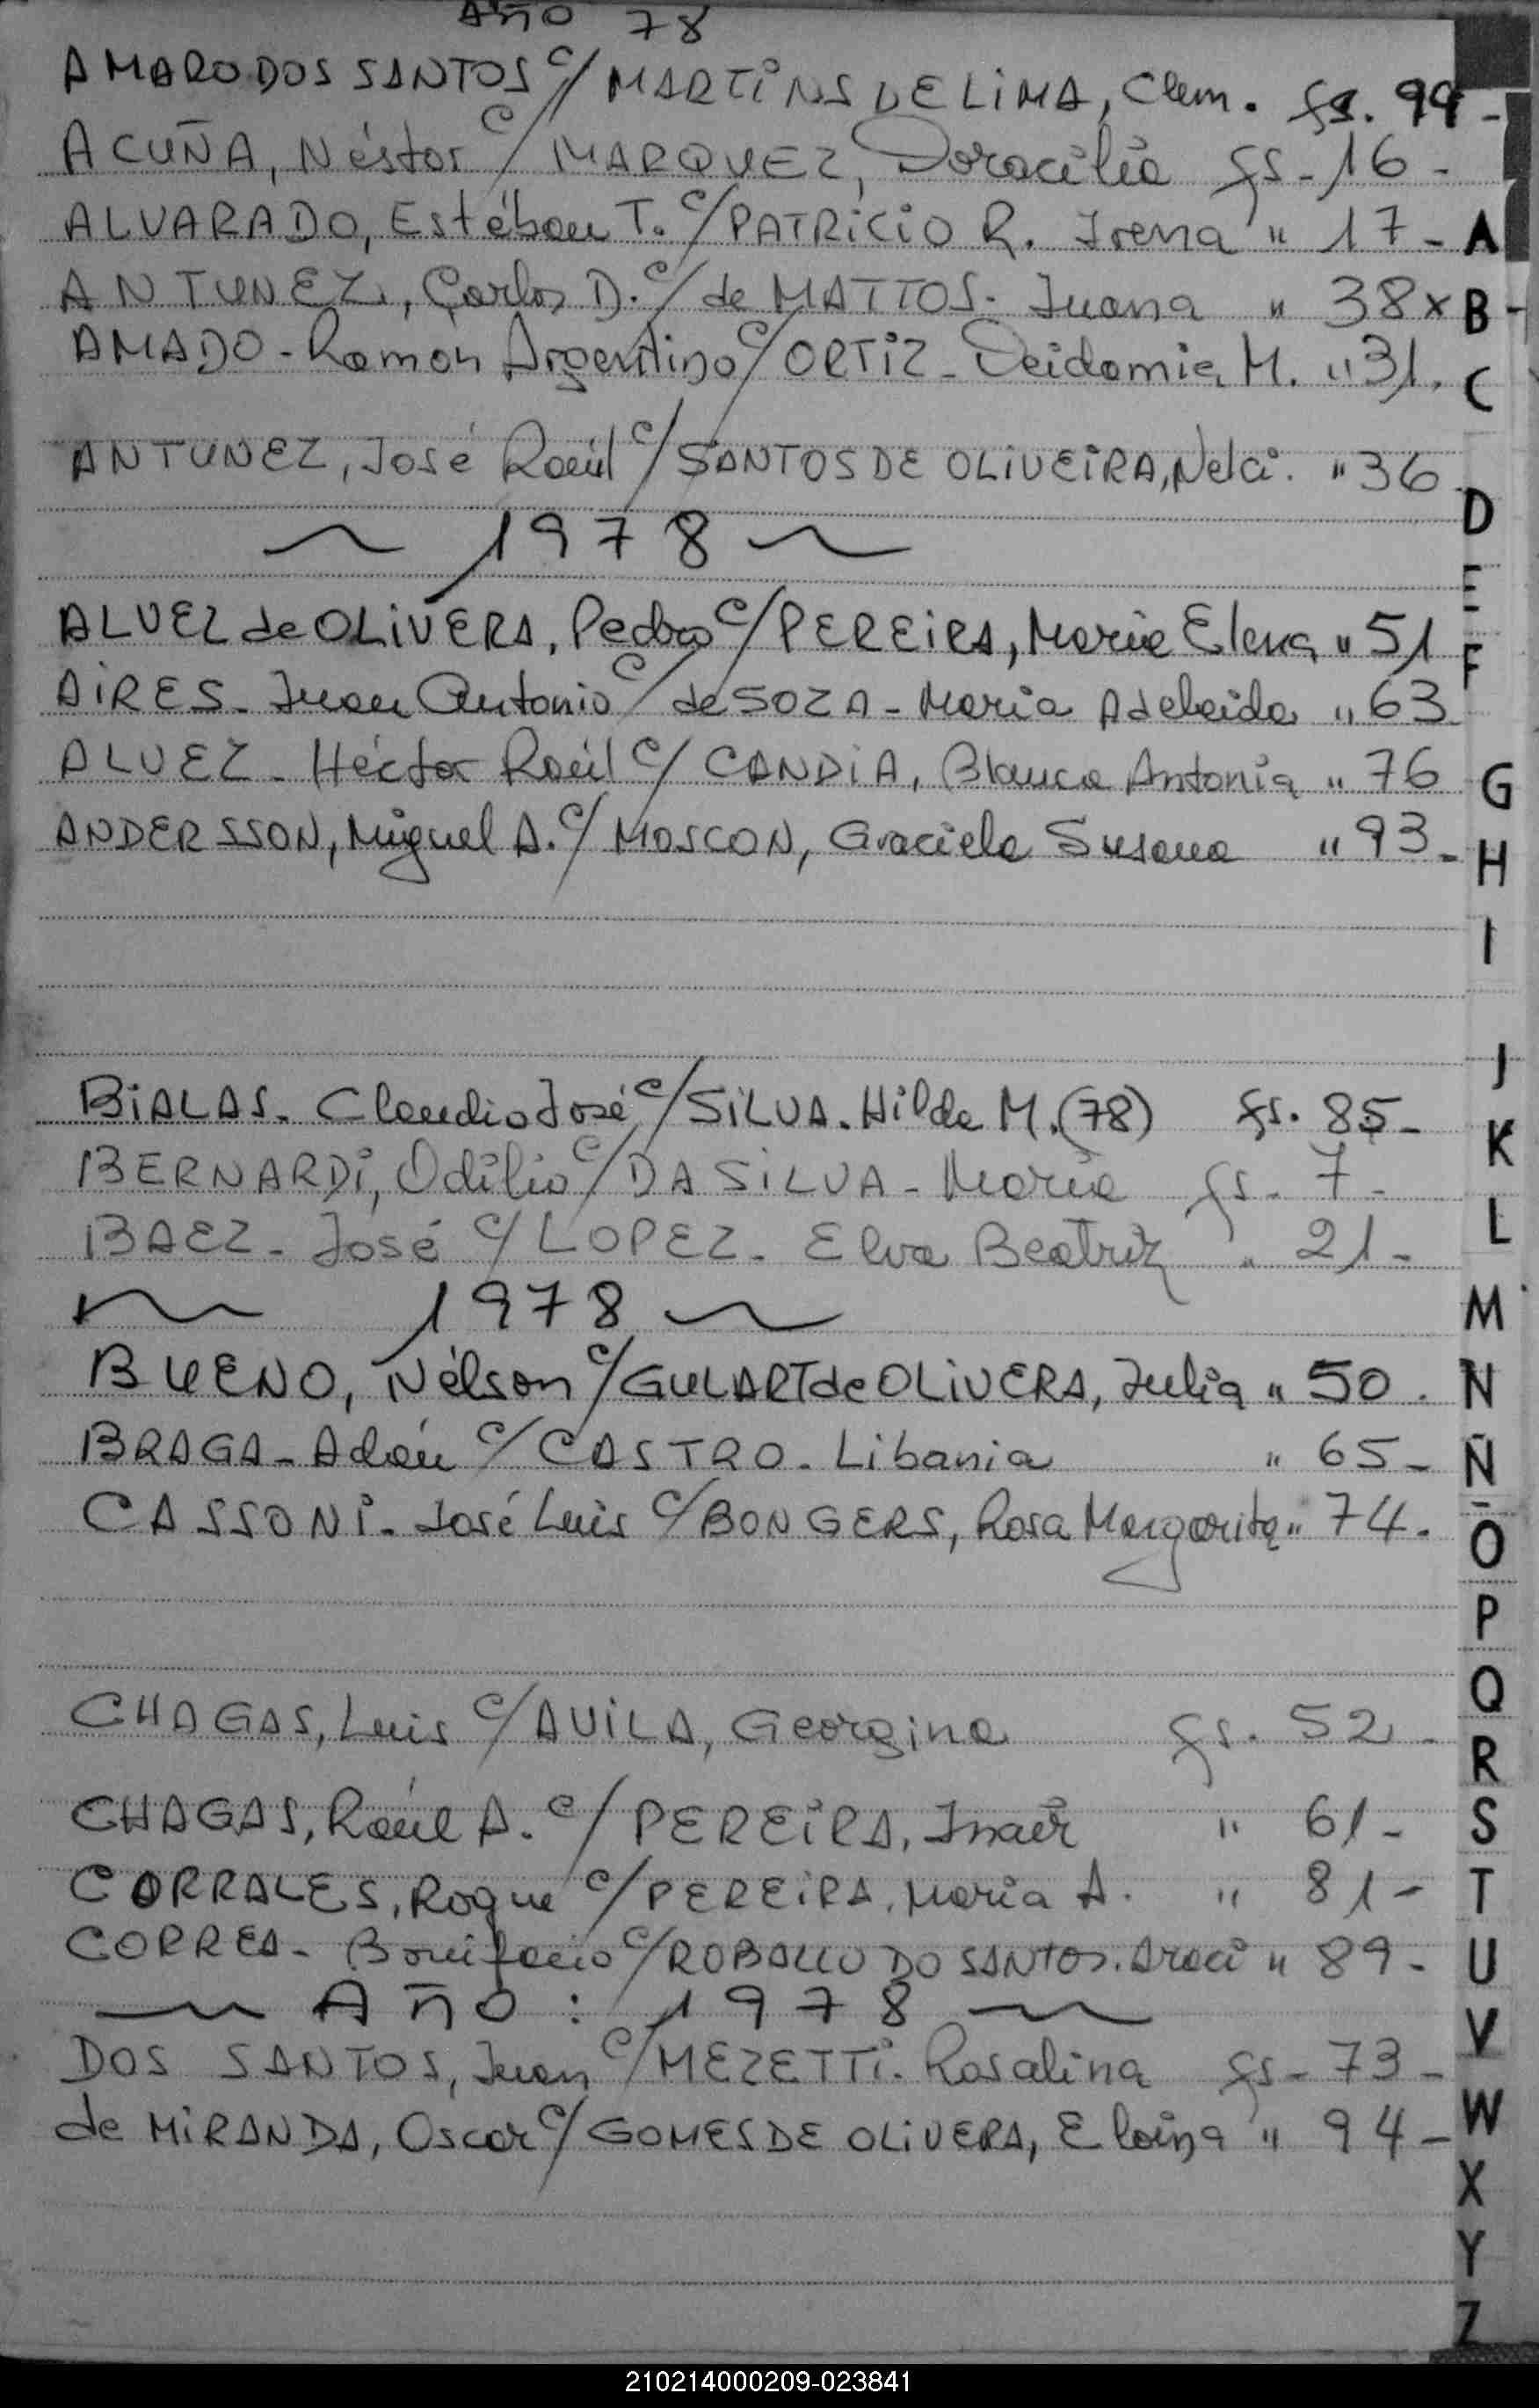 Año 78
AMARO DOS SANTOS c/ MARTiNS DE LiMA, Clem. fs. 99-
ACUÑA, Néstor c/ MARQUEZ, Doracilia fs-16-
ALVARADO, Estéban T. c/ PATRiCiO R. Irena " 17- A
ANTUNEZ, Carlos D. c/ de MATTOS- Juana " 38x B
AMADO- Ramón Argentino c/ ORTiZ- Deidamia M. " 31. C
ANTUNEZ, José Raúl c/ SANTOS DE OLiVEiRA, Nelci. " 36
D
~ 1978 ~
E
ALVEZ de OLiVERA, Pedro c/ PEREiRA, Maria Elena " 51 F
AiRES- Juan Antonio c/ de SOZA- Maria Adelaida " 63
ALVEZ- Héctor Raúl c/ CANDiA, Blanca Antonia " 76 G
ANDERSSON, Miguel A. c/ MOSCON, Graciela Susana " 93- H
I
J
BiALAS- Claudio José c/ SiLVA. Hilda M. (78) fs. 85-
K
BERNARDi, Odilio c/ DA SiLVA- Maria fs. 7-
BAEZ- José c/ LOPEZ- Elva Beatriz " 21- L
~ 1978 ~ M
BUENO, Nélson c/ GULART de OLiVERA, Julia " 50. N
BRAGA- Adán c/ CASTRO. Libania " 65- Ñ
CASSONi- José Luis c/ BONGERS, Rosa Margarita " 74. O
P
Q
CHAGAS, Luis c/ AViLA, Georgina fs. 52-
R
CHAGAS, Raúl A. c/ PEREiRA, Inair " 61- S
CORRALES, Roque c/ PEREiRA, Maria A. " 81- T
CORREA- Bonifacio c/ ROBALLO DO SANTOS. Araci " 89- U
~ Año: 1978 ~ V
DOS SANTOS, Juan c/ MEZETTi. Rosalina fs- 73-
de MiRANDA, Oscar c/ GOMES DE OLiVERA, Eloina " 94- W
X
Y
Z
210214000209-023841